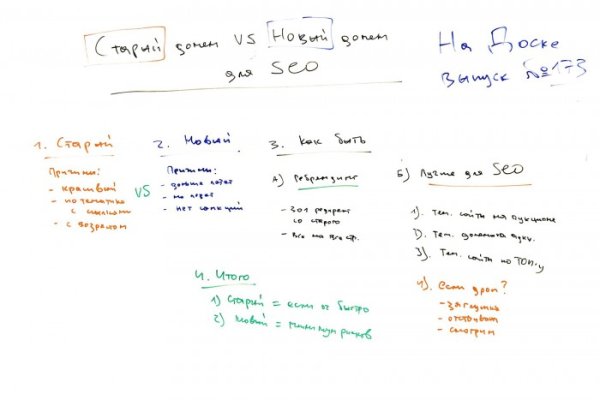 Старый домен VS Новый домен
для SEO
На Доске
выпуск №173
1. Старый
Причины:
- красивый
- по тематике
с ссылками
- с возрастом
VS
2. Новый
Причины:
- дольше
- не
- нет санкций
3. Как быть
А) Ребрендинг
- 301 редирект
со старого
- Все на все стр.
Б) Лучше для SEO
1). Тем. сайты на аукционе
2). Тем. домены аукц.
3). Тем. сайты по ТОП-у
4). Если дроп?
- заглушка
- отстаивать
- смотрим
4. Итого
1) Старый = если оч быстро
2) Новый = минимум рисков